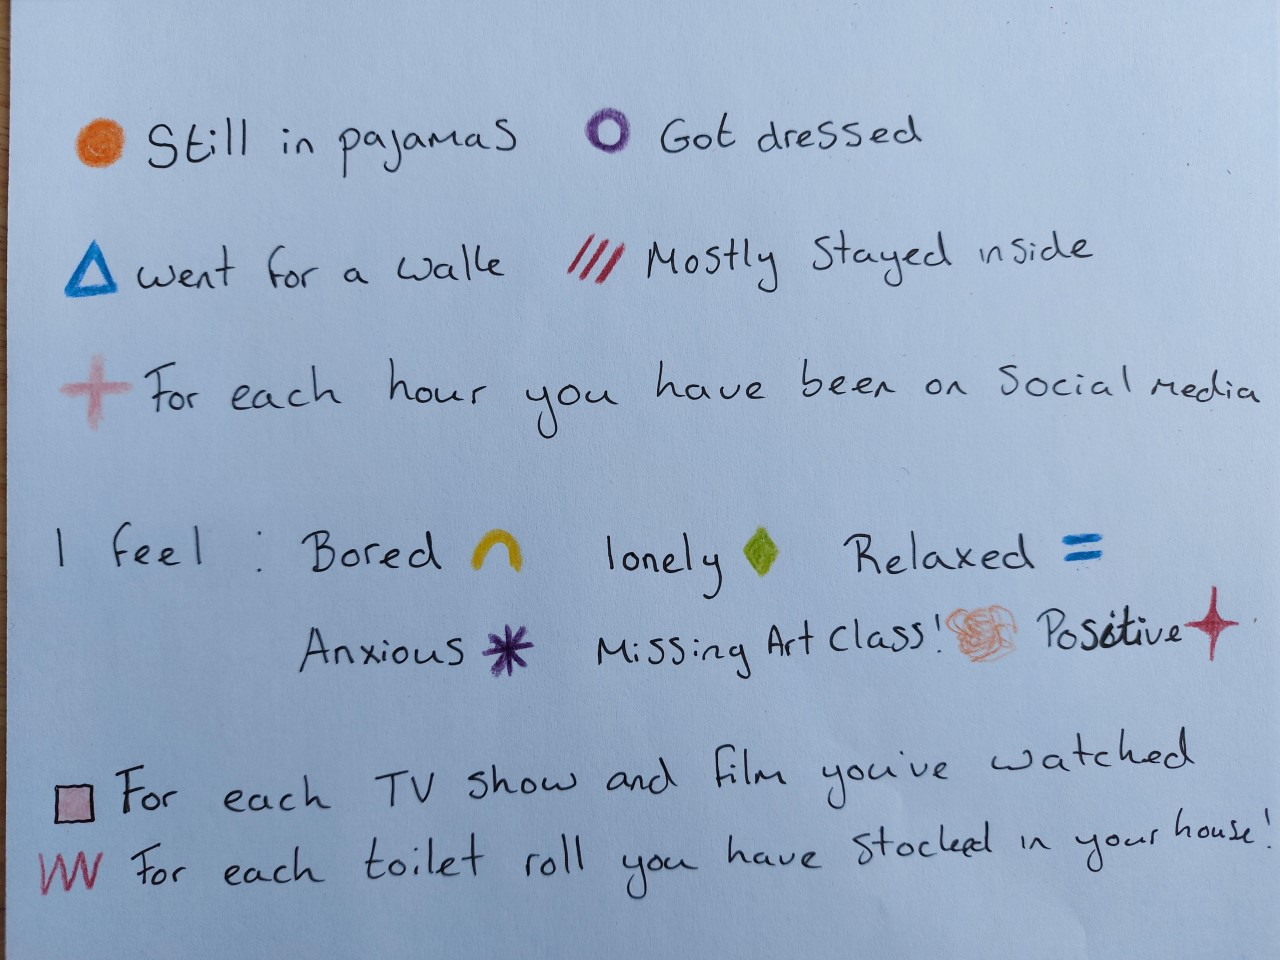 Still in pajamas Got dressed
went for a walk Mostly Stayed inside
For each hour you have been on Social media
I feel : Bored lonely Relaxed
Anxious Missing Art Class! Positive
For each TV show and film you've watched
For each toilet roll you have stocked in your house!